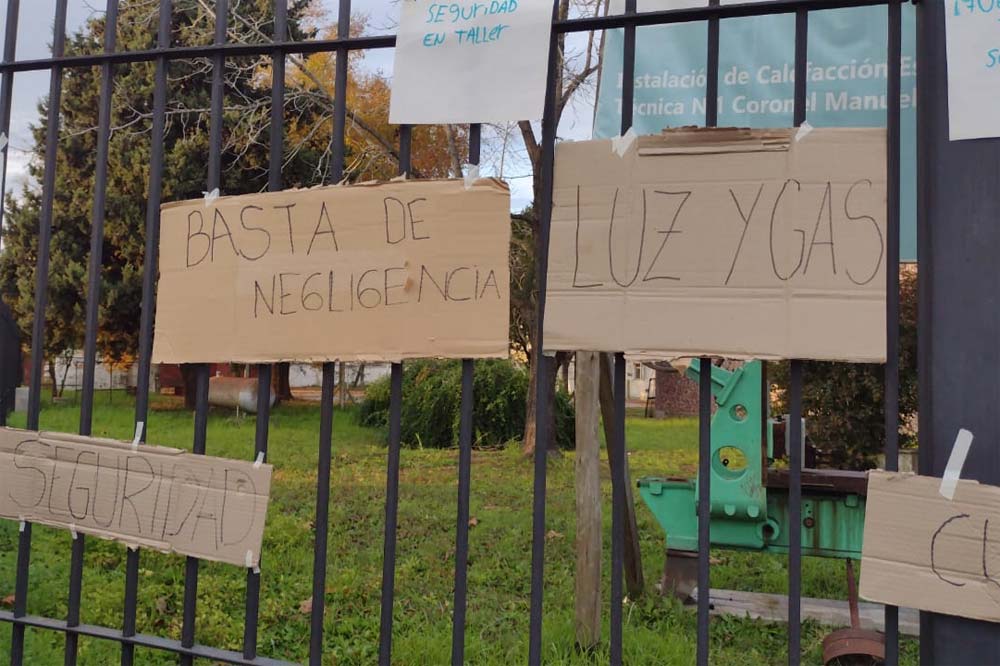 SEGURIDAD
EN TALLER
Instalación de Calefacción Es
Técnica N°1 Coronel Manuel
BASTA DE
NEGLIGENCIA
LUZ Y GAS
SEGURIDAD
CL